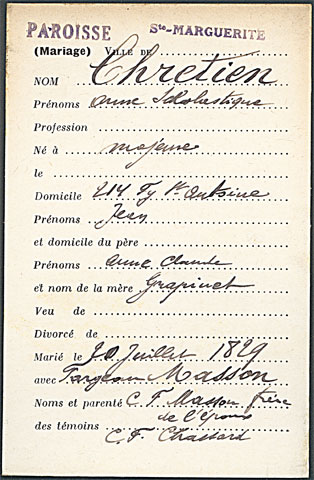 PAROISSE Ste-MARGUERITE
(Mariage) VILLE DE
NOM Chretien
Prénoms anne Scholastique
Profession
Né à majeure
le
Domicile 214 fg St antoine
Prénoms Jean
et domicile du père
Prénoms anne Claude
et nom de la mère Grapinet
Veu de
Divorcé de
Marié le 20 Juillet 1829
avec Masson
Noms et parenté C. F. Masson frère
de l'époux
des témoins C. F. Chassard